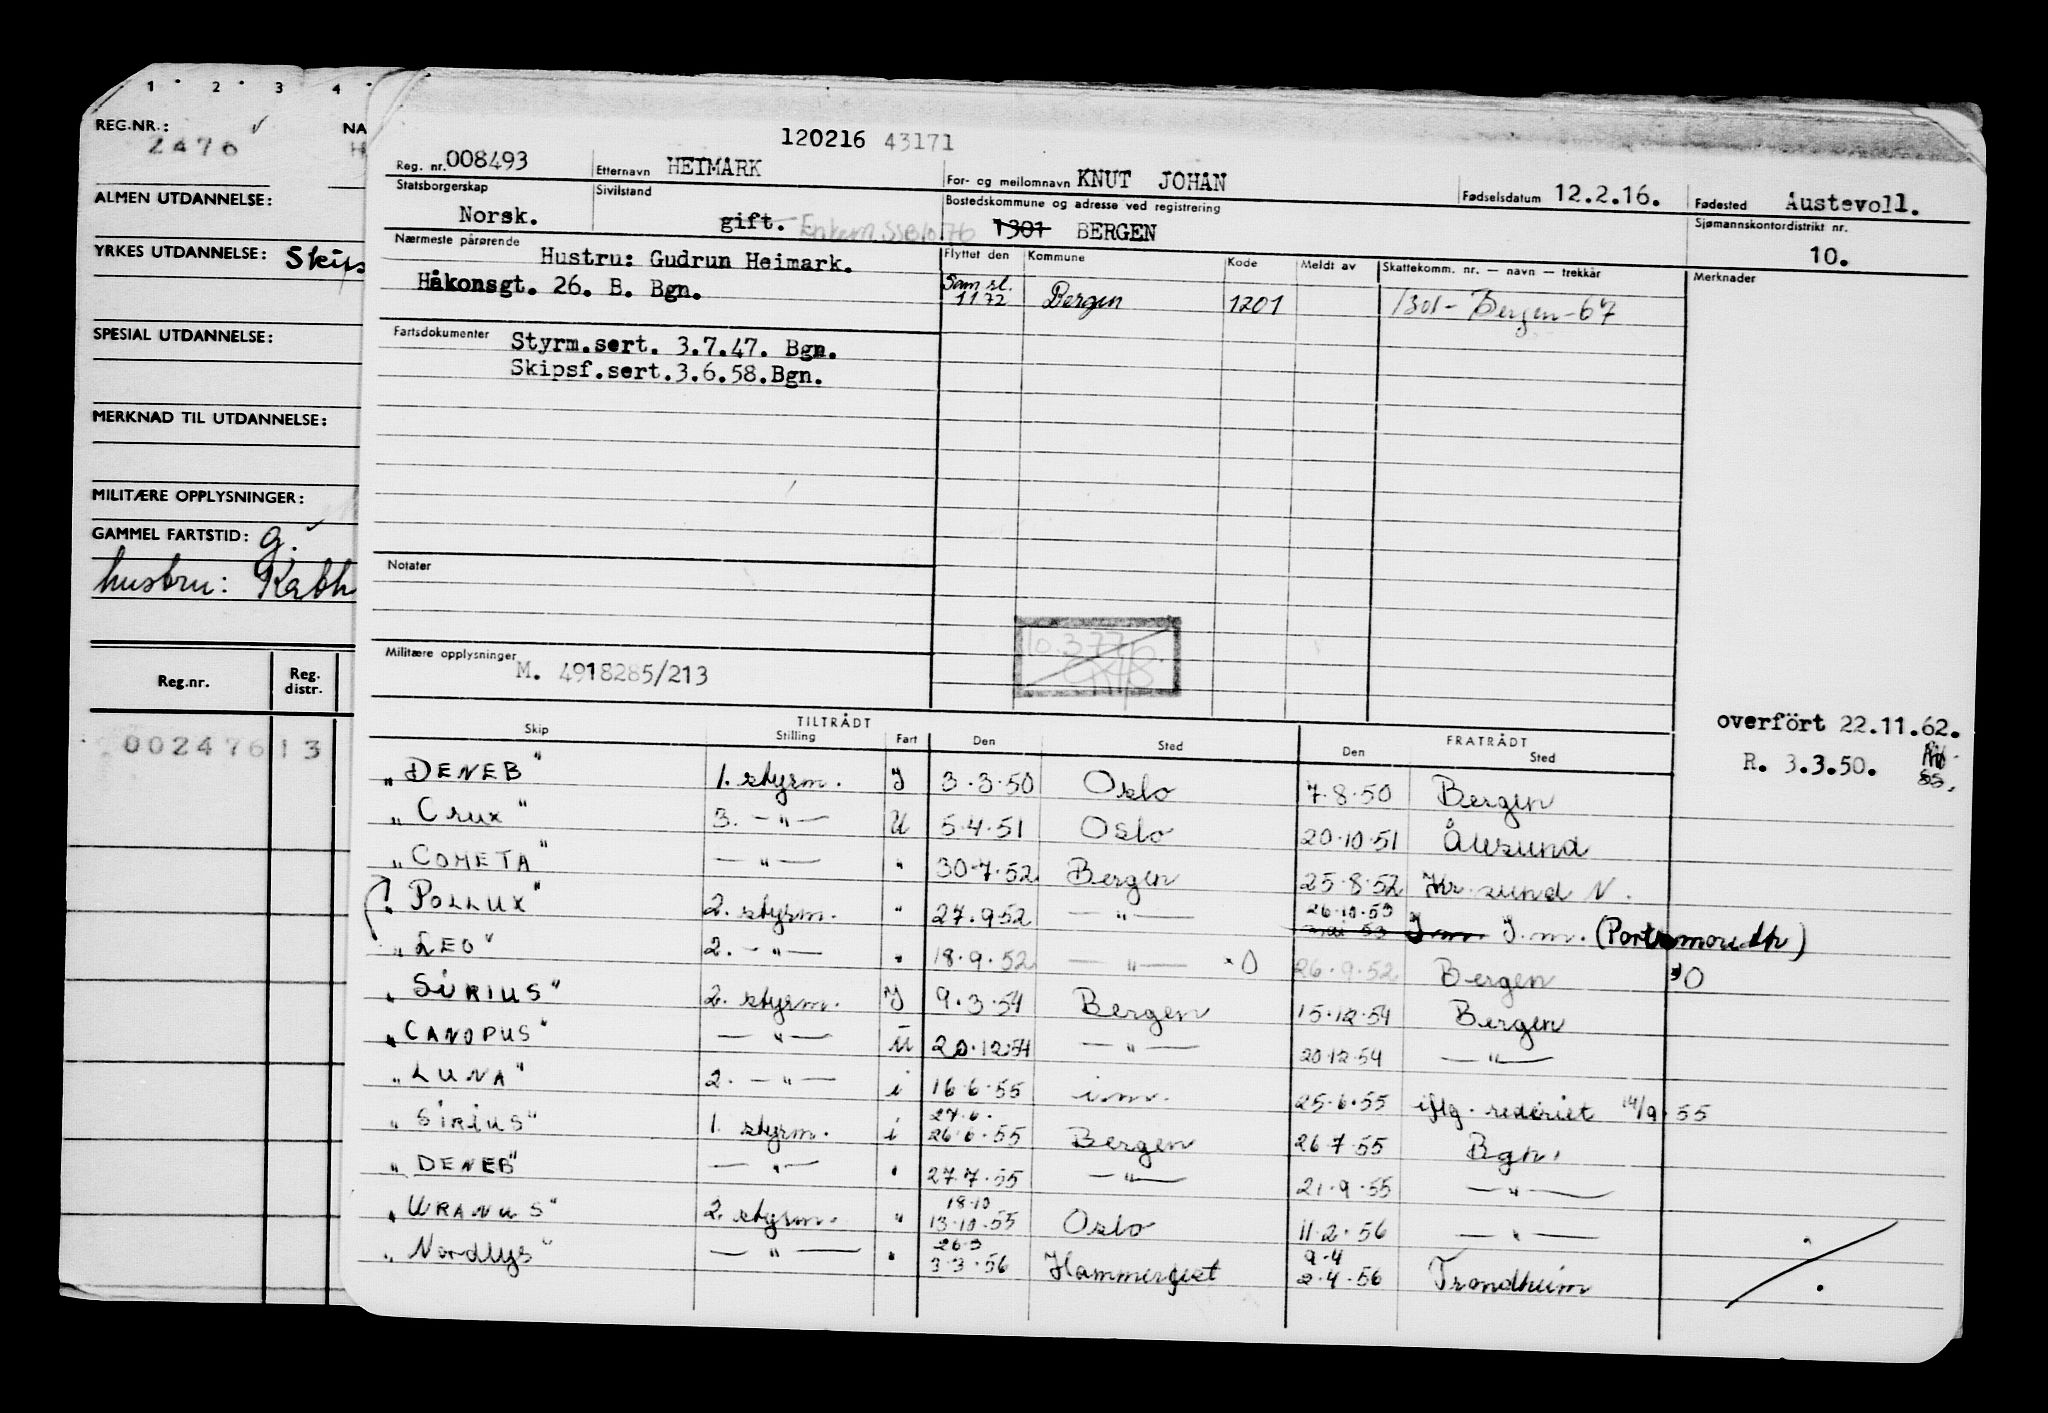 1 2 3 4
REG.NR.: NA
2476 H
ALMEN UTDANNELSE:
YRKES UTDANNELSE: Skips
SPESIAL UTDANNELSE:
MERKNAD TIL UTDANNELSE:
MILITÆRE OPPLYSNINGER:
GAMMEL FARTSTID: g.
hustru: Kath
Reg.nr. Reg. distr.
002476 13
120216 43171
Reg. nr. 008493 Etternavn HEIMARK For- og mellomnavn KNUT JOHAN Fødselsdatum 12.2.16. Fødested Austevoll.
Statsborgerskap Sivilstand Bostedskommune og adresse ved registrering Sjømannskontordistrikt nr.
Norsk. gift. Enkem. SSB 10/76 1301 BERGEN 10.
Nærmeste pårørende Hustru: Gudrun Heimark. Flyttet den Kommune Kode Meldt av Skattekomm. nr. — navn — trekkår Merknader
Håkonsgt. 26. B. Bgn. Sam sl. 1172 Bergen 1201 1301 - Bergen - 67
Fartsdokumenter Styrm.sert. 3.7.47. Bgn.
Skipsf.sert.3.6.58.Bgn.
Notater
10.377
Militære opplysninger M. 4918285/213
TILTRÅDT FRATRÅDT overfört 22.11.62.
Skip Stilling Fart Den Sted Den Sted R. 3.3.50.
„DENEB" 1. styrm. J 3.3.50 Oslo 7.8.50 Bergen
„Crux" 3. — " — U 5.4.51 Oslo 20.10.51 Ålesund
„COMETA" — " — " 30.7.52 Bergen 25.8.52 Kr.sund N.
„POLLUX" 2. styrm. " 27.9.52 — " — 26.10.53 mai 53 I.m. I.m. (Portsmouth)
„LEO" 2. — " — " 18.9.52 — " — *O 26.9.52 Bergen *O
„SIRIUS" 2. styrm. J 9.3.54 Bergen 15.12.54 Bergen
„CANOPUS" — " — U 20.12.54 — " — 20.12.54 — " —
„LUNA" 2. — " — i 16.6.55 i.m. 25.6.55 iflg. rederiet 14/9.55
„SIRIUS" 1. styrm. i 27.6. 26.6.55 Bergen 26.7.55 Bgn.
„DENEB" — " — " 27.7.55 — " — 21.9.55 — " —
„URANUS" 2. styrm. " 18.10 13.10.55 Oslo 11.2.56 — " —
„Nordlys" — " — " 26.3 3.3.56 Hammerfest 9.4 2.4.56 Trondheim